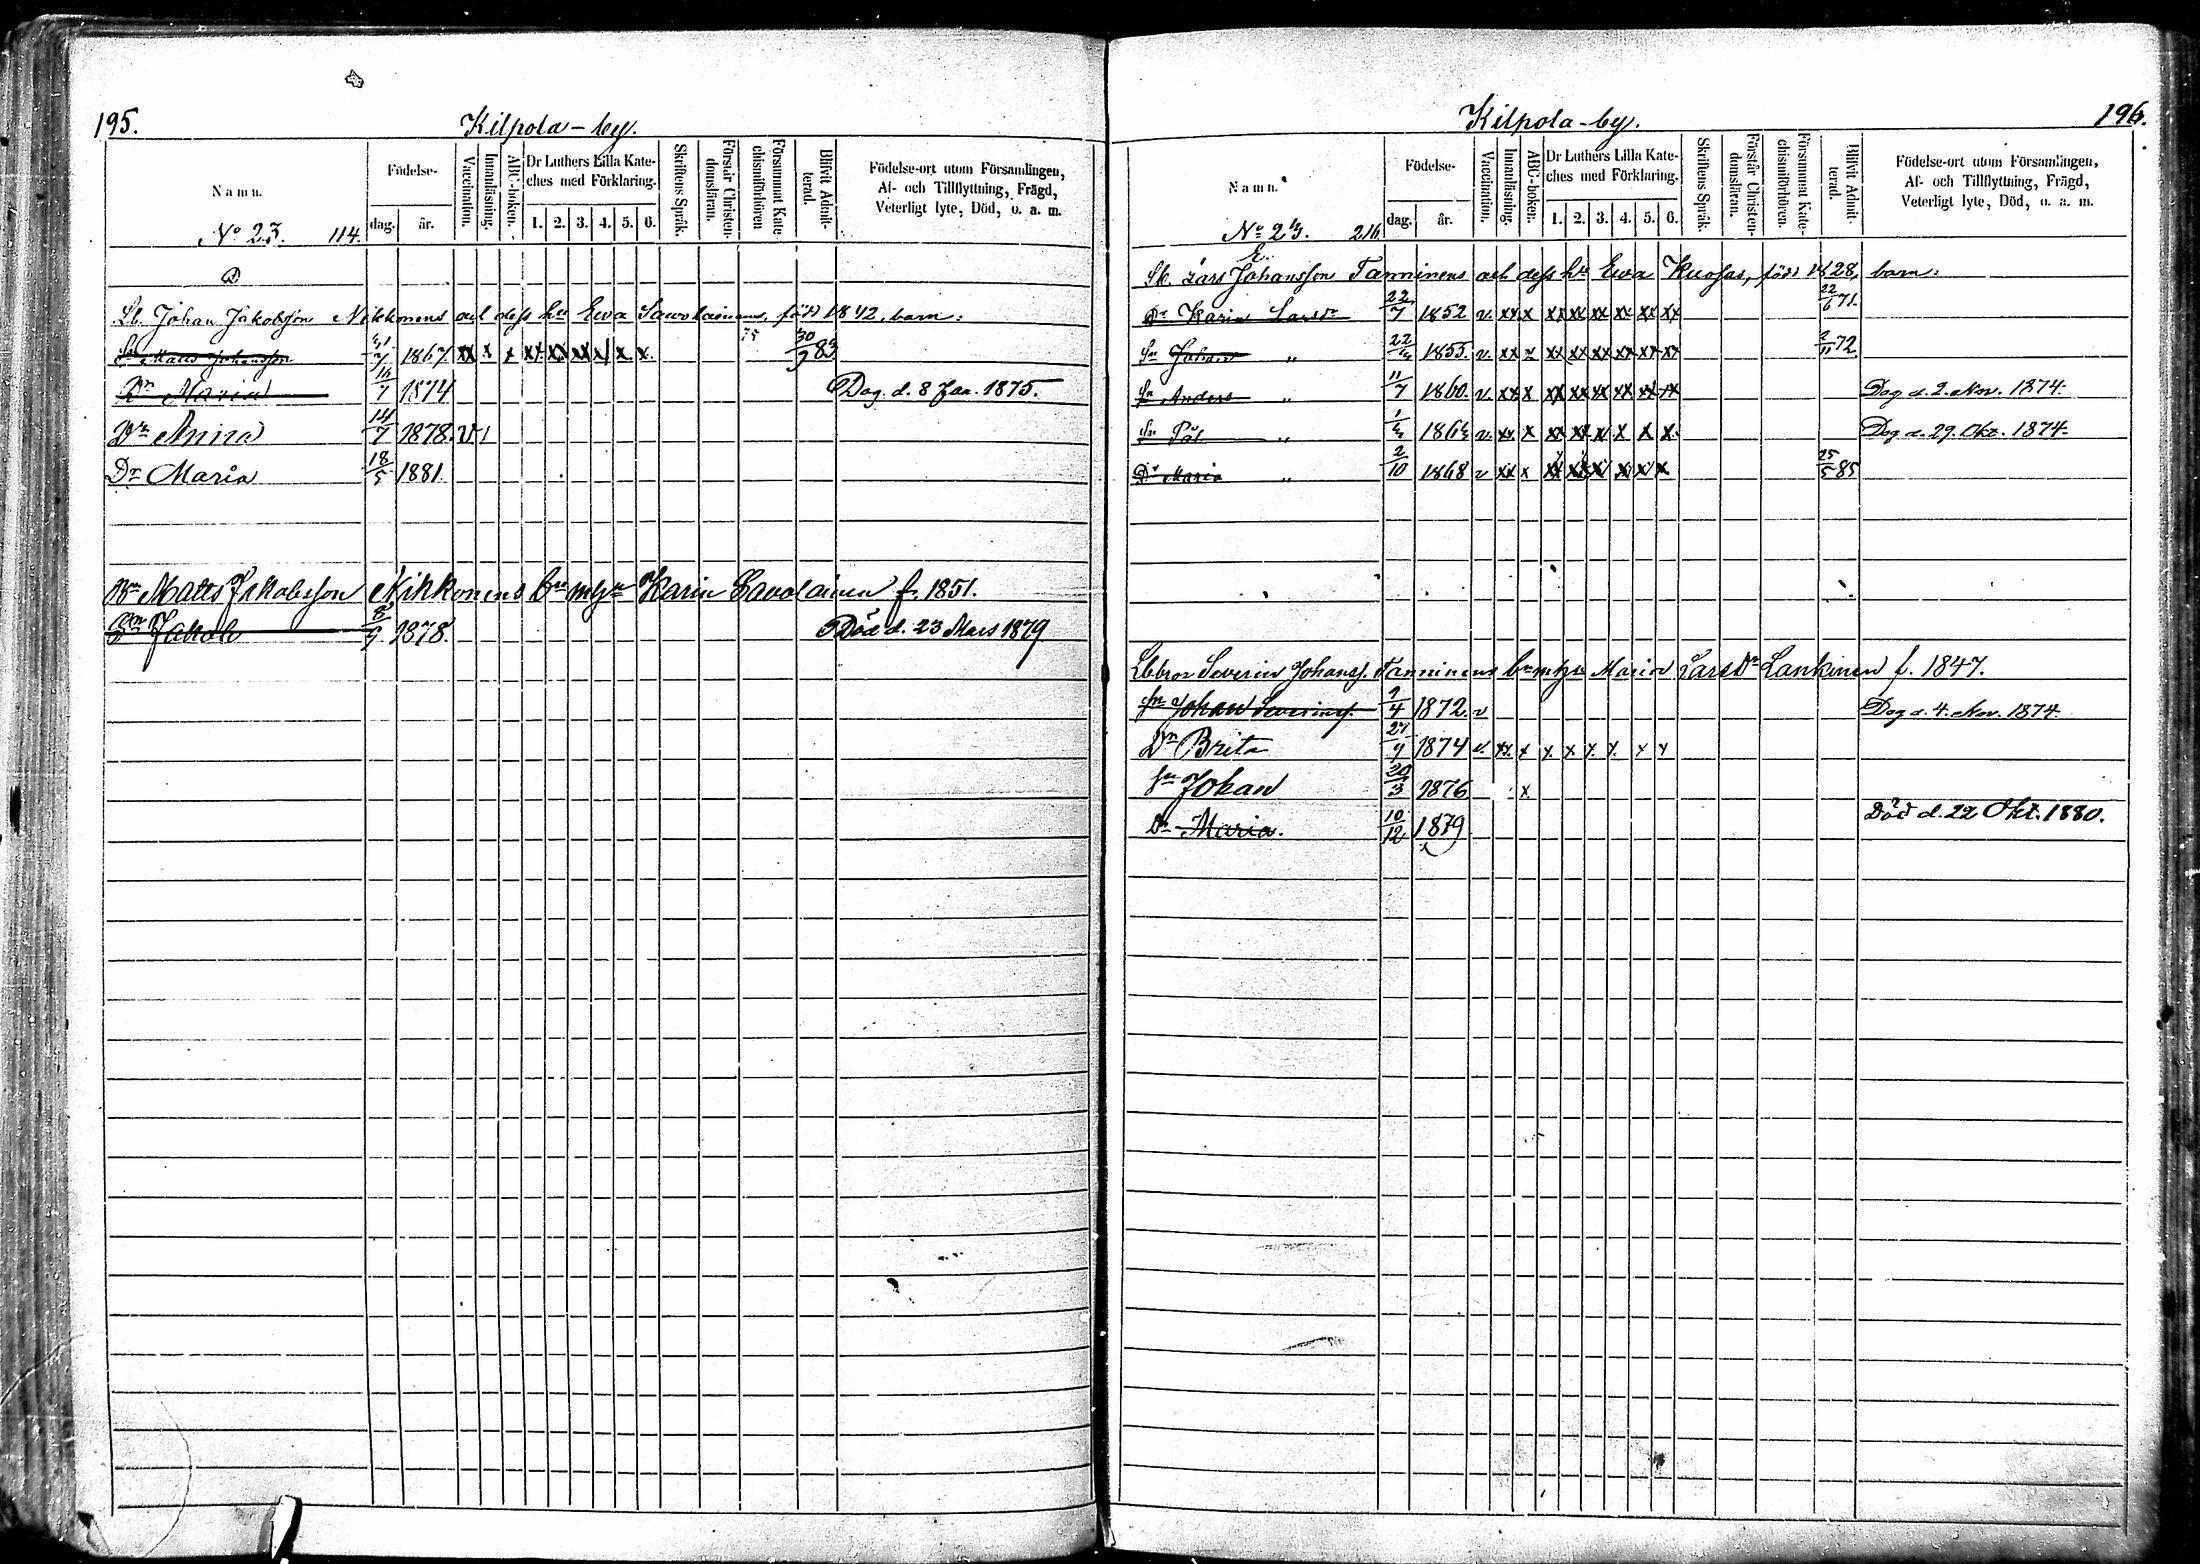 195.
Kilpola-by.
Namn.
Födelse-
dag.
år.
Vaccination.
Innanläsning.
ABC-boken.
Dr Luthers Lilla Kate-
ches med Förklaring.
1. 2. 3. 4. 5. 6.
Skriftens Språk.
Förstår Christen-
domsläran.
Försummat Kate-
chismiförhören
Blifvit Admit-
terad.
Födelse-ort utom Församlingen,
Af- och Tillflyttning, Frägd,
Veterligt lyte, Död, o. a. m.
No 23. 114.
D
Lb. Johan Jakobsson Nikkonens och dess hu Ewa Sawolainens, född 1842, barn:
Sn Matts Johansson 1867. xx x x xx xx xx x x x. 75 30/9 83
Dr Maria 16/7 1874 Dog d. 8 Jan. 1875.
Dr Anna 14/7 1878. v 1
Dr Maria 18/5 1881.
Matts Jakobsson Nikkonens bn m hu Karin Savolainen f. 1851.
Sn Jakob 8/9 1878. Död d. 23 Mars 1879
196.
Kilpola-by.
Namn.
Födelse-
dag.
år.
Vaccination.
Innanläsning.
ABC-boken.
Dr Luthers Lilla Kate-
ches med Förklaring.
1. 2. 3. 4. 5. 6.
Skriftens Språk.
Förstår Christen-
domsläran.
Försummat Kate-
chismiförhören.
Blifvit Admit-
terad.
Födelse-ort utom Församlingen,
Af- och Tillflyttning, Frägd,
Veterligt lyte, Död, o. a. m.
No 23. 216.
E.
Lb. Lars Johansson Tanninens och dess hu Ewa Kuosas, född 1828, barn:
Dr Karin Larsdr 22/7 1852 v. xx x xx xx xx xx xx xx 22/6 71.
Sn Johan " 1855. v. xx x xx xx xx xx xx xx 2/11 72
Sn Anders " 11/7 1860. v. xx x xx xx xx xx xx xx Dog d. 2. Nov. 1874.
Sn Pål " v. xx x xx xx x x x x. Dog d. 29. Okt. 1874.
Dr Maria " 2/10 1868 v xx x xx xx x x x x 25/5 85
Lbbror Severin Johanss. Tanninens bn m hu Maria Larsdr Lankinen f. 1847.
Sn Johan Severinss. 9/4 1872. v Dog d. 4. Nov. 1874.
Dr Brita 1874 v. xx. x x x x x x x
Sn Johan 20/3 1876 x
Dr Maria. 10/12 1879 Död d. 22 Okt. 1880.